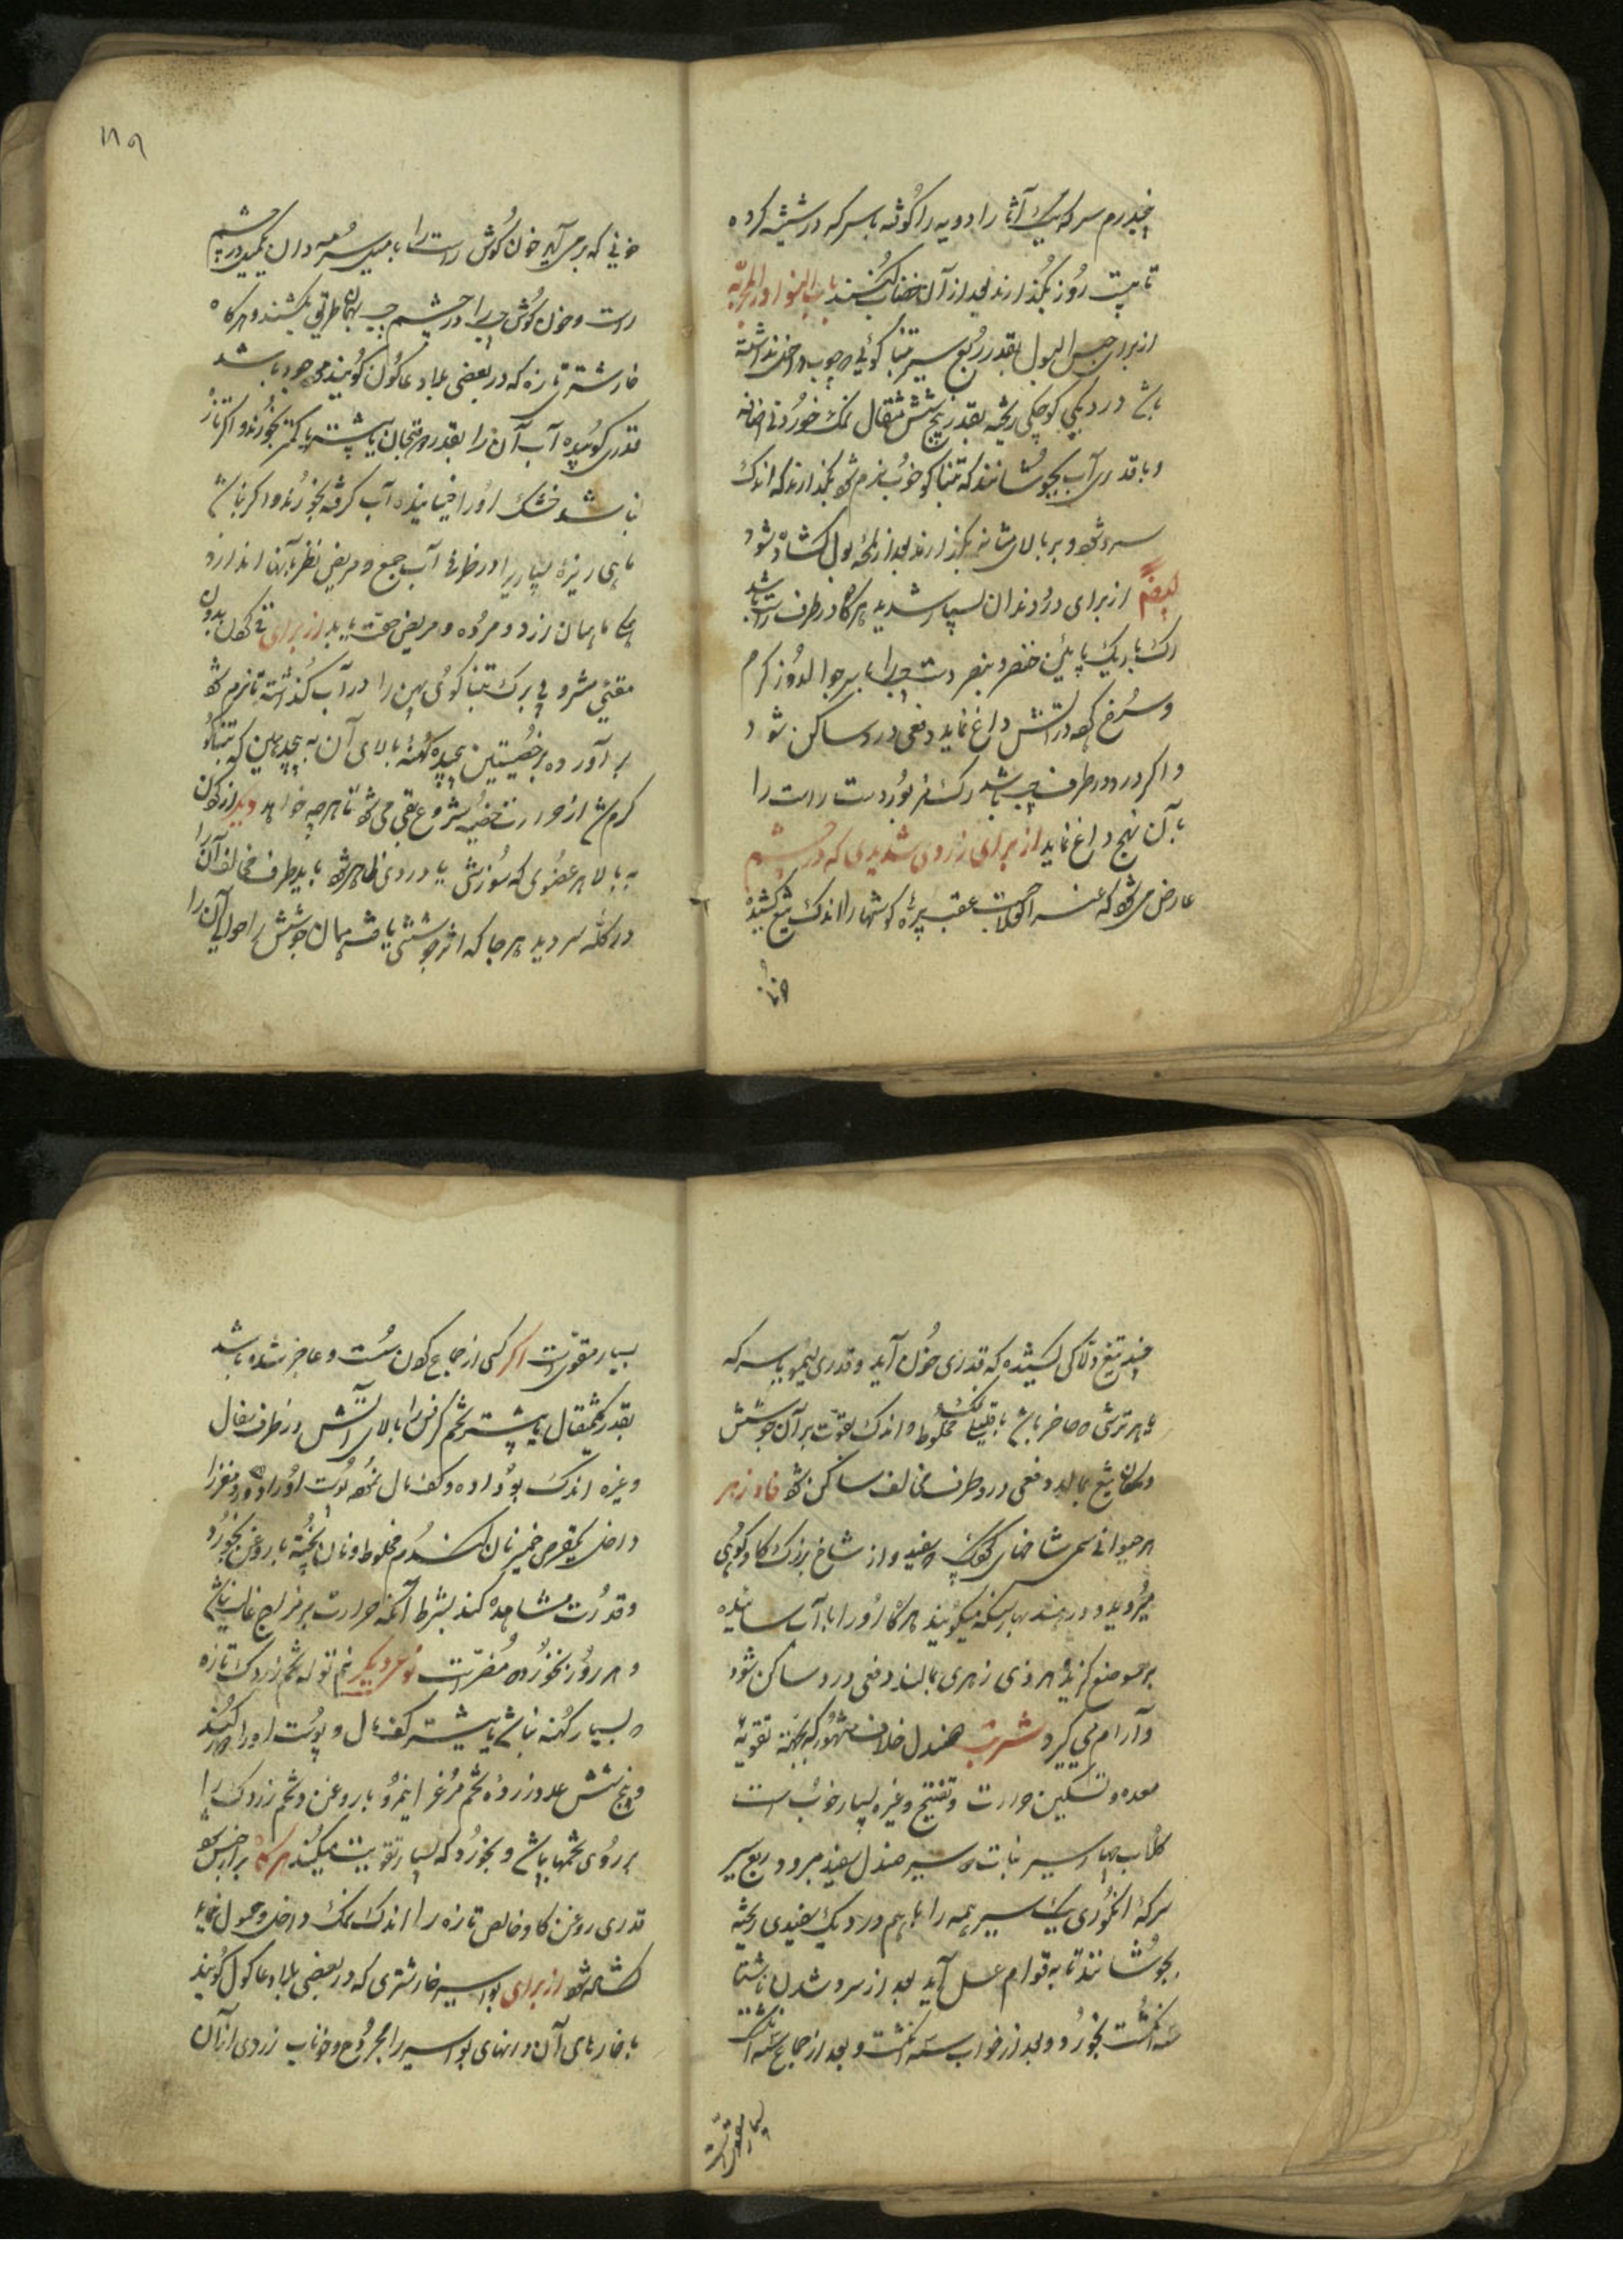 درم سرکه یک آثار ادویه را کوفته با سرکه در شیشه کرده
تا بیست روز بگذارند بعد از آن خضاب کنند باب النوادر المجربه
از برای حبس البول بقدر ربع سیر تنباکوئی چوب نداشته
باشد در دیکی کوچکی ریخته بقدر پنج شش مثقال نمک خوردنی اضافه
و با قدری آب بجوشانند که تنباکو خوب نرم شود بگذارند که اندک
سرد شود و بر بالای مثانه بگذارند بعد از لمحه بول کشاده شود
ایضاً از برای درد دندان بسیار شدید هرگاه در طرف راست باشد
رک باریک پائین خنصر و بنصر دست چپ را با سر جوالدوز کرم
و سرخ در آتش داغ نماید دفعی درد ساکن شود
و اکر درد در طرف چپ باشد رک مزبور دست راست را
بآن نهج داغ نماید از برای زردی شدیدی که در چشم
عارض می شود که عقب پره کوشها را اندک تیغ کشیده
خونی که بر می آید خون کوش راست را با میل سرمه دان بکشند در چشم
راست و خون کوش چپ را در چشم چپ بهمان طریق بکشند و هرگاه
خارشتر تازه که در بعضی بلاد عاکول کویند موجود باشد
قدری کوبیده آب آن را بقدر دو فنجان یا بیشتر یا کمتر بخورند و اکر تازه
نباشد خشک او را خیسانیده آب کرفته بخورند و اکر نباشد
ماهی ریزه بسیار را در ظرف آب جمع و مریض نظر بآن اندازد
ماهیان زرد و مرده و مریض صحت یابد از برای قی کردن بدون
مقئی مشروبی برک تنباکوی پهن را در آب کذاشته تا نرم شود
بر آورده بر خصیتین پیچیده کهنه بالای آن به پیچد همین که تنباکو
کرم شد از حرارت خصیه شروع بقی می شود تا هر چه خواهد دیگر از کردن
به بالا هر عضوی که سوزش یا دردی ظاهر شود باید طرف مخالف آن را
در کله سر دید هر جا که اثر جوششی یافت همان جوشش را حوالی آن را
چند تیغ دلاکی کشیده که قدری خون آید و قدری لیمو یا سرکه
یا هر ترشی حاضر باشد با قلیلی نمک مخلوط و اندک بقوت بر آن جوشش
و مکان تیغ بمالد دفعی درد طرف مخالف ساکن شود فاد زهر
هر حیوانی سمی شاخهای کوچک سفید و از شاخ بزرک کاو کوهی
میروید و در هند بهارسنکه میکویند هرکاه او را با آب سائیده
بر موضع کزیده هر ذی زهری بمالند دفعی درد ساکن شود
و آرام می گیرد شربت صندل خلاف مشهور که بجهة تقویة
معده و تسکین حرارت و تفتیح و غیره بسیار خوب است
کلاب چهار سیر نبات سیر صندل سفید مبرود ربع سیر
سرکه انکوری یک سیر همه را باهم در دیک سفیدی ریخته
بجوشانند تا به قوام عسل آید بعد از سرد شدن ناشتا
سه انکشت بخورد و بعد از خواب سه انکشت و بعد از جماع سه انکشت
بسیار مقویست
بسیار مقویست اکر کسی از جماع کردن سست و عاجز شده باشد
بقدر یکمثقال یا بیشتر تخم کرفس را بالای آتش در ظرف سفال
و غیره اندک بو داده و کف مال نموده پوست او را دور و مغز را
داخل یکقرص خمیر نان کندم مخلوط و نان پخته با روغن بخورد
و قدرت مشاهده کند بشرط آنکه حرارت بر مزاج غالب نباشد
و هر روز بخورد مضر است نوع دیگر نیم توله تخم زردک تازه
بسیار کهنه نباشد یا بیشتر کف مال و پوست او را کنند
و پنج شش عدد زرده تخم مرغ را نیمرو با روغن و تخم زردک را
بر روی تخمها پاشد و بخورد که بسیار تقویت میکند هرکاه براز حبس شود
قدری روغن کاو خالص تازه را اندک نمک داخل و حمول نماید
کشاده شود از برای بواسیر خارشتری که در بعضی بلاد عاکول کویند
با خارهای آن دانهای بواسیر را مجروح و خوناب زردی از آن